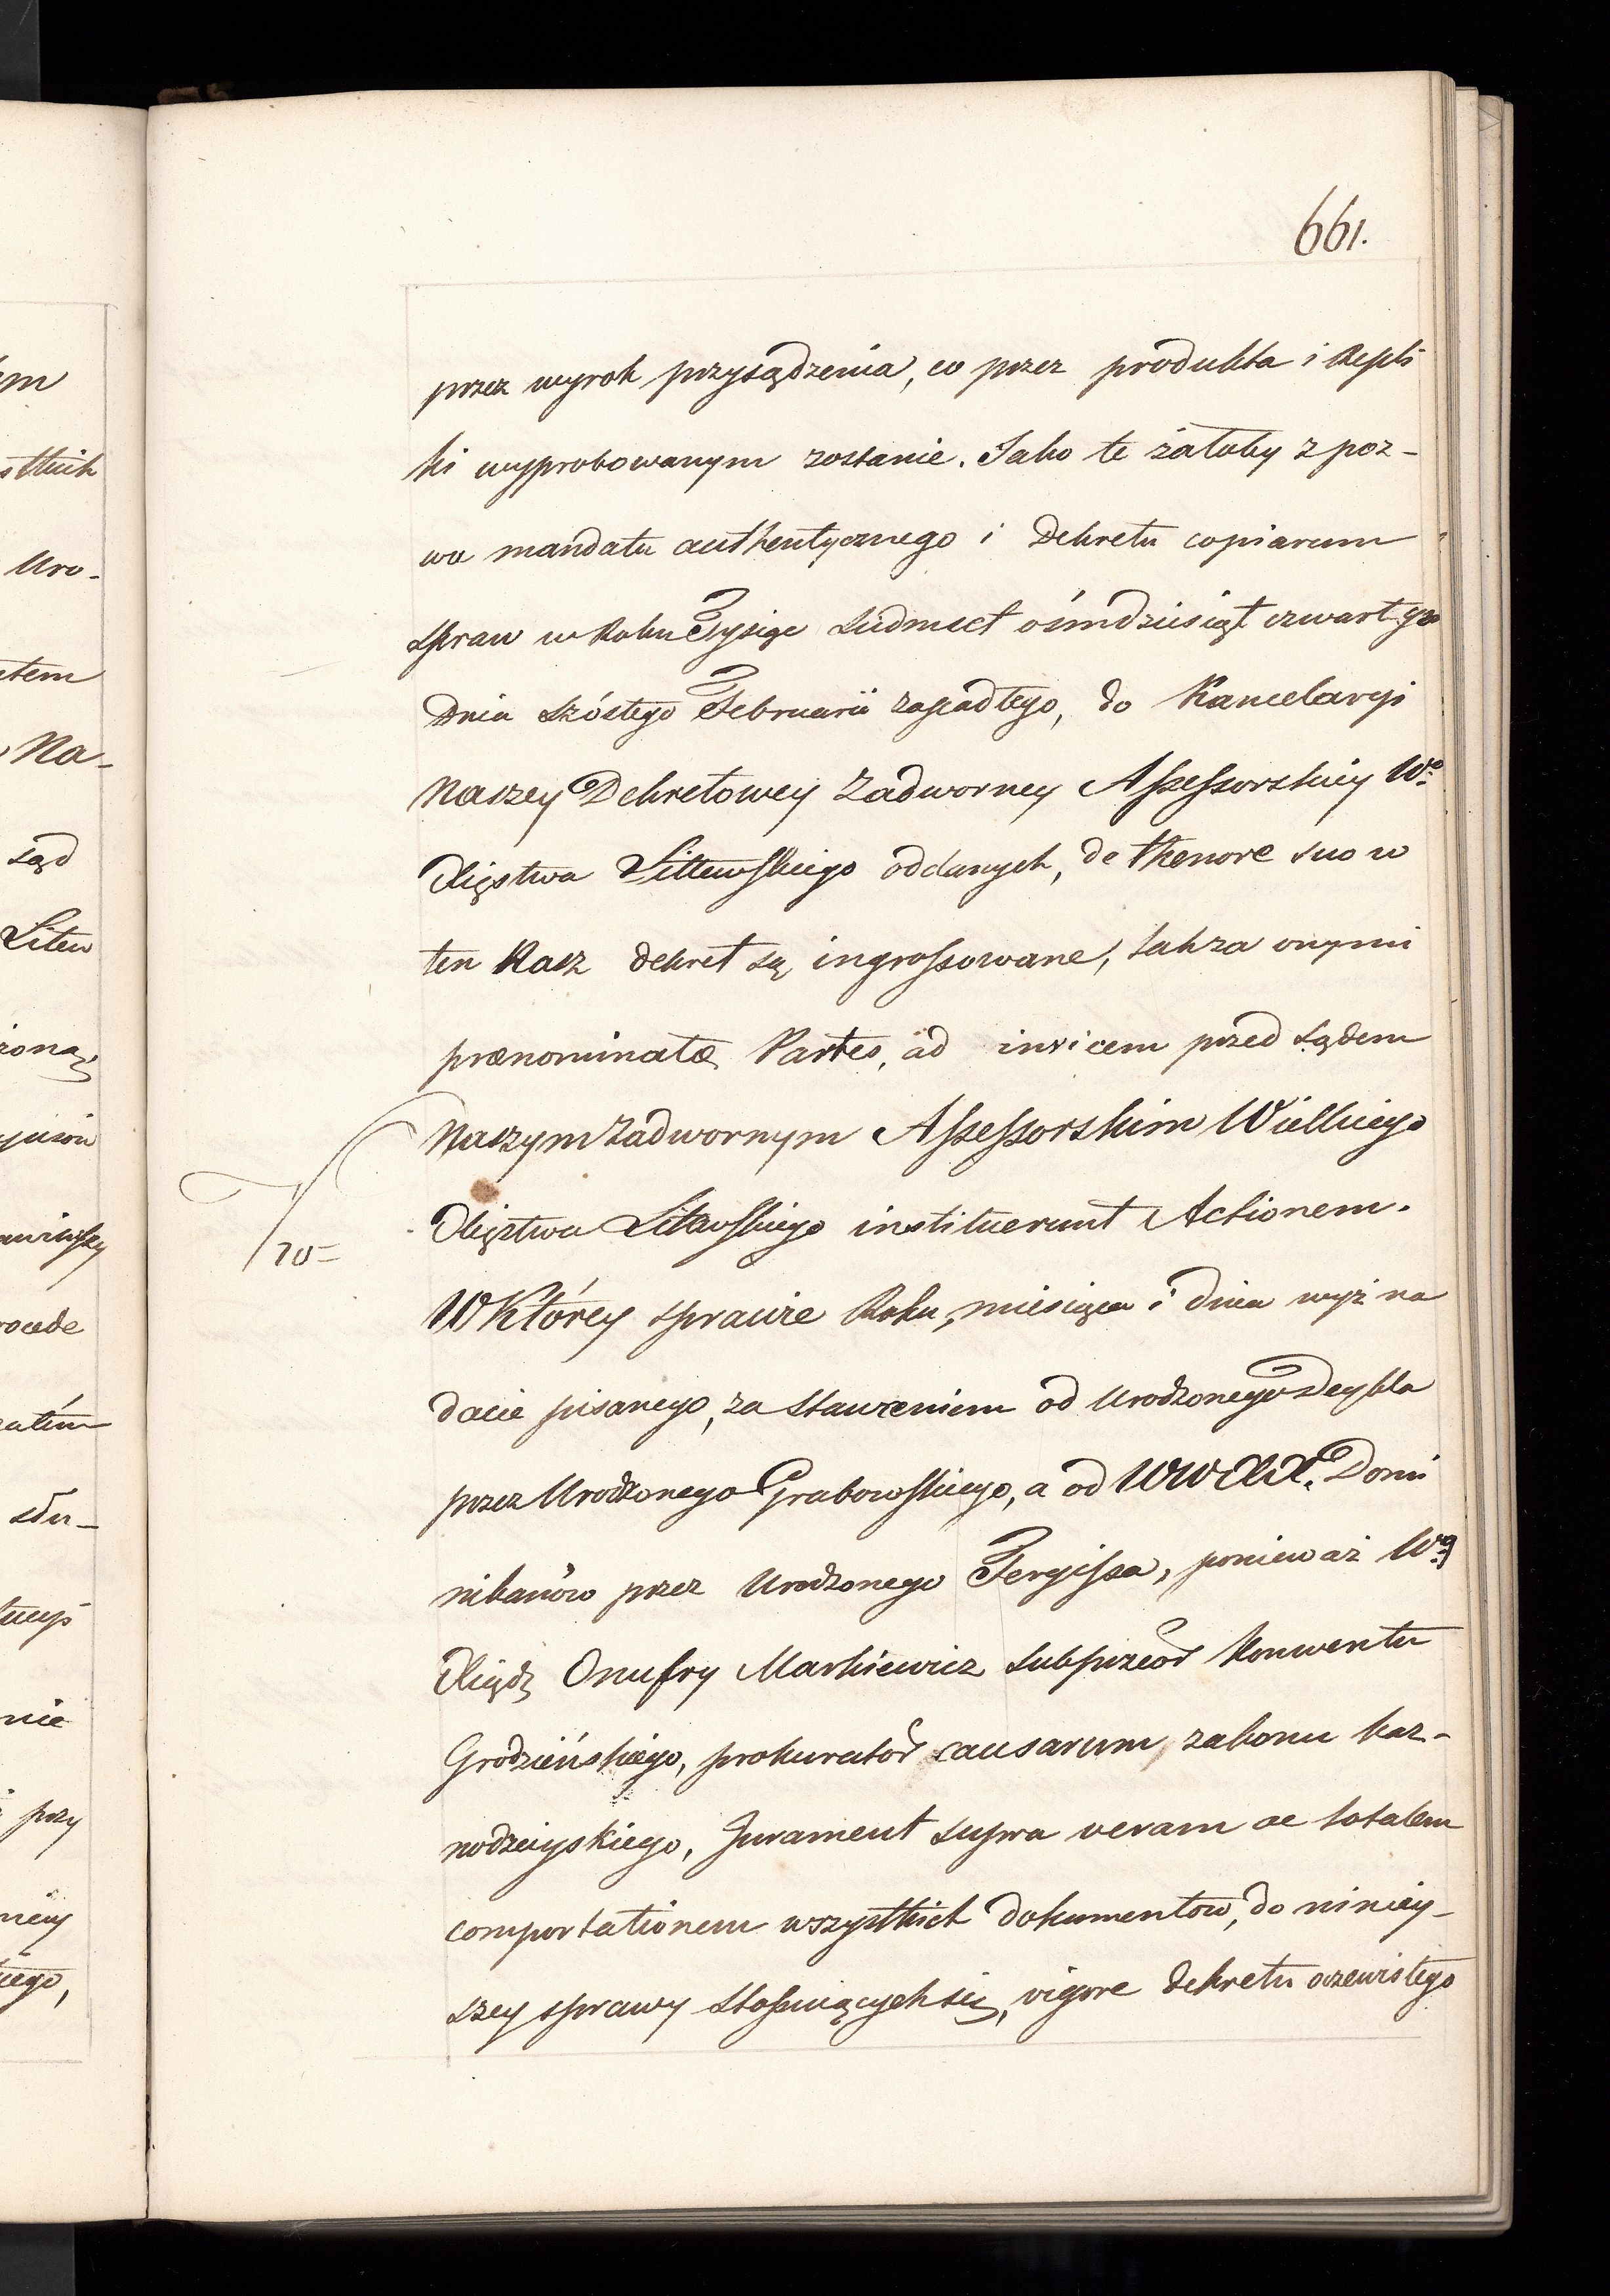 661.
przez wyrok przysądzenia, co przez produkta i Repli
ki wyprobowanym zostanie. Jako te żałoby z poz-
wa mandatu authentycznego i Dekretu copiarum
spraw w Roku Tysiąc Siedmset ośmdziesiąt czwartym
Dnia szóstego Februarii zapadłego, do Kancelaryi
Naszey Dekretowey Zadworney Assessorskiey Wo
Xięstwa Littewskiego oddanych, de thenore suo w
ten Nasz dekret są ingrossowane, tak za onymi
prænominatæ Partes, ad invicem przed sądem
Naszym Zadwornym Assessorskim Wielkiego
Xięztwa Litewskiego instituerunt Actionem.
W Którey sprawie Roku, miesiąca i dnia wyż na
dacie pisanego, za stawieniem od Urodzonego Deybla
przez Urodzonego Grabowskiego, a od WWXX. Domi
nikanów przez Urodzonego Fergissa, ponieważ W
Xiądz Onufry Markiewicz Subprzeor Konwentu
Grodzieńskiego, prokurator causarum zakonu kaz-
nodzieyskiego, Jurament supra veram ac totalem
comportationem wszystkich dokumentow, do niniey-
szey sprawy stosuiących się, vigore dekretu oczewistego
70=
m
stkich
Uro-
tem
Na-
sąd
Litew
żoną,
ocede
atim
słu-
nie
przy
niey
iego,